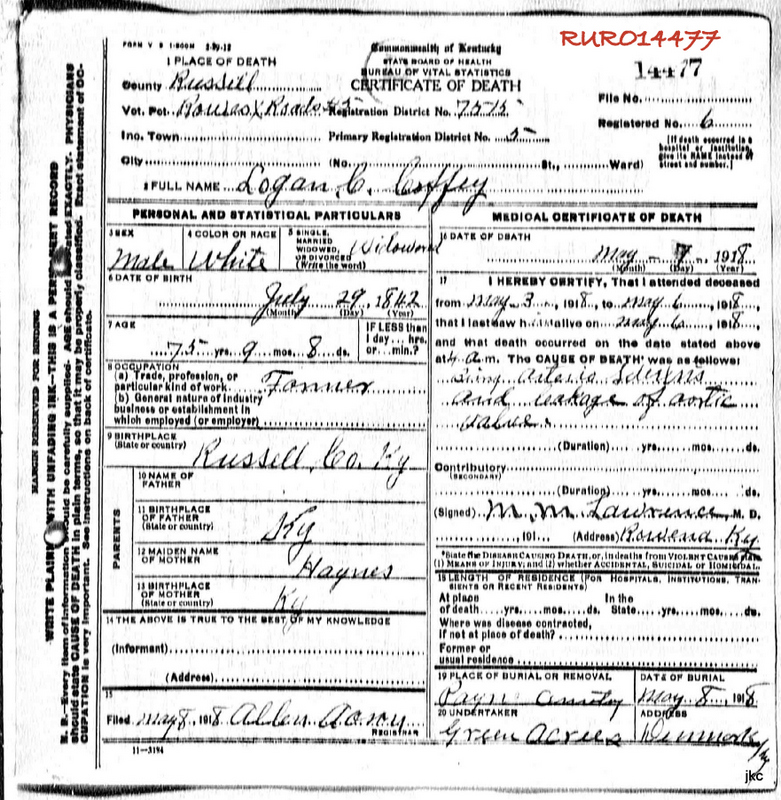 RURO14477
FORM V S 1-500M 2-19-18
Commonwealth of Kentucky
STATE BOARD OF HEALTH
BUREAU OF VITAL STATISTICS
CERTIFICATE OF DEATH
14477
1 PLACE OF DEATH
County Russell
Vot. Pct. Rouses X Roads #5 Registration District No. 7515
File No.
Registered No. 6
Inc. Town Primary Registration District No. 5
[If death occurred in a hospital or institution, give its NAME instead of street and number.]
City (No. St., Ward)
2 FULL NAME Logan C. Coffey
PERSONAL AND STATISTICAL PARTICULARS
3 SEX Male
4 COLOR OR RACE White
5 SINGLE, MARRIED WIDOWED, OR DIVORCED (Write the word) Widowed
6 DATE OF BIRTH
July 29, 1842
(Month) (Day) (Year)
7 AGE
75 yrs. 9 mos. 8 ds.
IF LESS than 1 day... hrs. or... min.?
8 OCCUPATION
(a) Trade, profession, or particular kind of work Farmer
(b) General nature of industry business or establishment in which employed (or employer)
9 BIRTHPLACE (State or country)
Russell Co. Ky
PARENTS
10 NAME OF FATHER
11 BIRTHPLACE OF FATHER (State or country) Ky
12 MAIDEN NAME OF MOTHER Haynes
13 BIRTHPLACE OF MOTHER (State or country) Ky
14 THE ABOVE IS TRUE TO THE BEST OF MY KNOWLEDGE
(Informant)
(Address)
15
Filed May 8, 1918 Allen
REGISTRAR
11-3184
MEDICAL CERTIFICATE OF DEATH
16 DATE OF DEATH
May 7, 1918
(Month) (Day) (Year)
17 I HEREBY CERTIFY, That I attended deceased
from May 3, 1918, to May 6, 1918,
that I last saw h alive on May 6, 1918,
and that death occurred on the date stated above
at 4 a.m. The CAUSE OF DEATH* was as follows:
and leakage of aortic
valve.
(Duration) yrs. mos. ds.
Contributory (SECONDARY)
(Duration) yrs. mos. ds.
(Signed) M. M. Lawrence, M. D.
, 191 (Address) Rowena Ky.
*State the DISEASE CAUSING DEATH, or, in deaths from VIOLENT CAUSES, state
(1) MEANS OF INJURY; and (2) whether ACCIDENTAL, SUICIDAL or HOMICIDAL.
18 LENGTH OF RESIDENCE (FOR HOSPITALS, INSTITUTIONS, TRANSIENTS OR RECENT RESIDENTS)
At place of death yrs. mos. ds. In the State yrs. mos. ds.
Where was disease contracted,
if not at place of death?
Former or
usual residence
19 PLACE OF BURIAL OR REMOVAL
DATE OF BURIAL
May 8, 1918
20 UNDERTAKER
Green Acres
ADDRESS
Denmark Ky
MARGIN RESERVED FOR BINDING
WRITE PLAINLY WITH UNFADING INK—THIS IS A PERMANENT RECORD
N. B.—Every item of information should be carefully supplied. AGE should be stated EXACTLY. PHYSICIANS
should state CAUSE OF DEATH in plain terms, so that it may be properly classified. Exact statement of OC-
CUPATION is very important. See instructions on back of certificate.
jkc